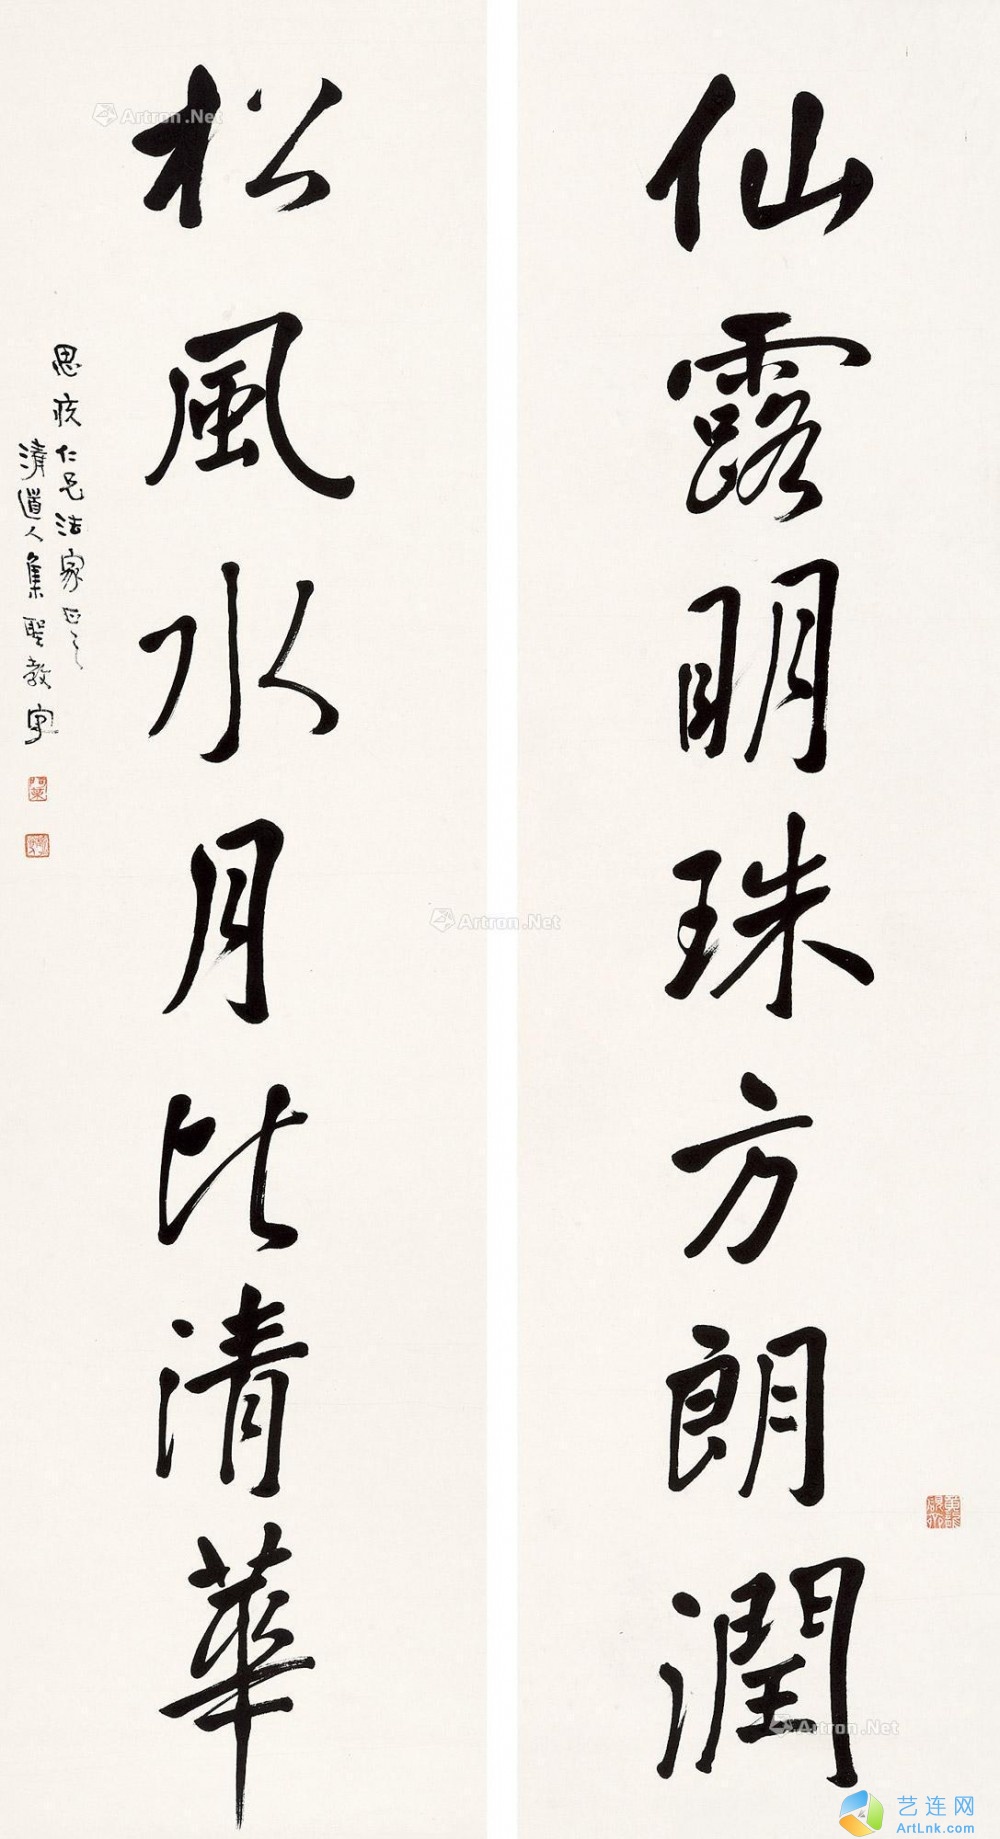 仙露明珠方朗潤
松風水月比清華
思疢仁兄法家正之
清道人集聖教字
Artron.Net
Artron.Net
Artron.Net
艺连网
ArtLnk.com